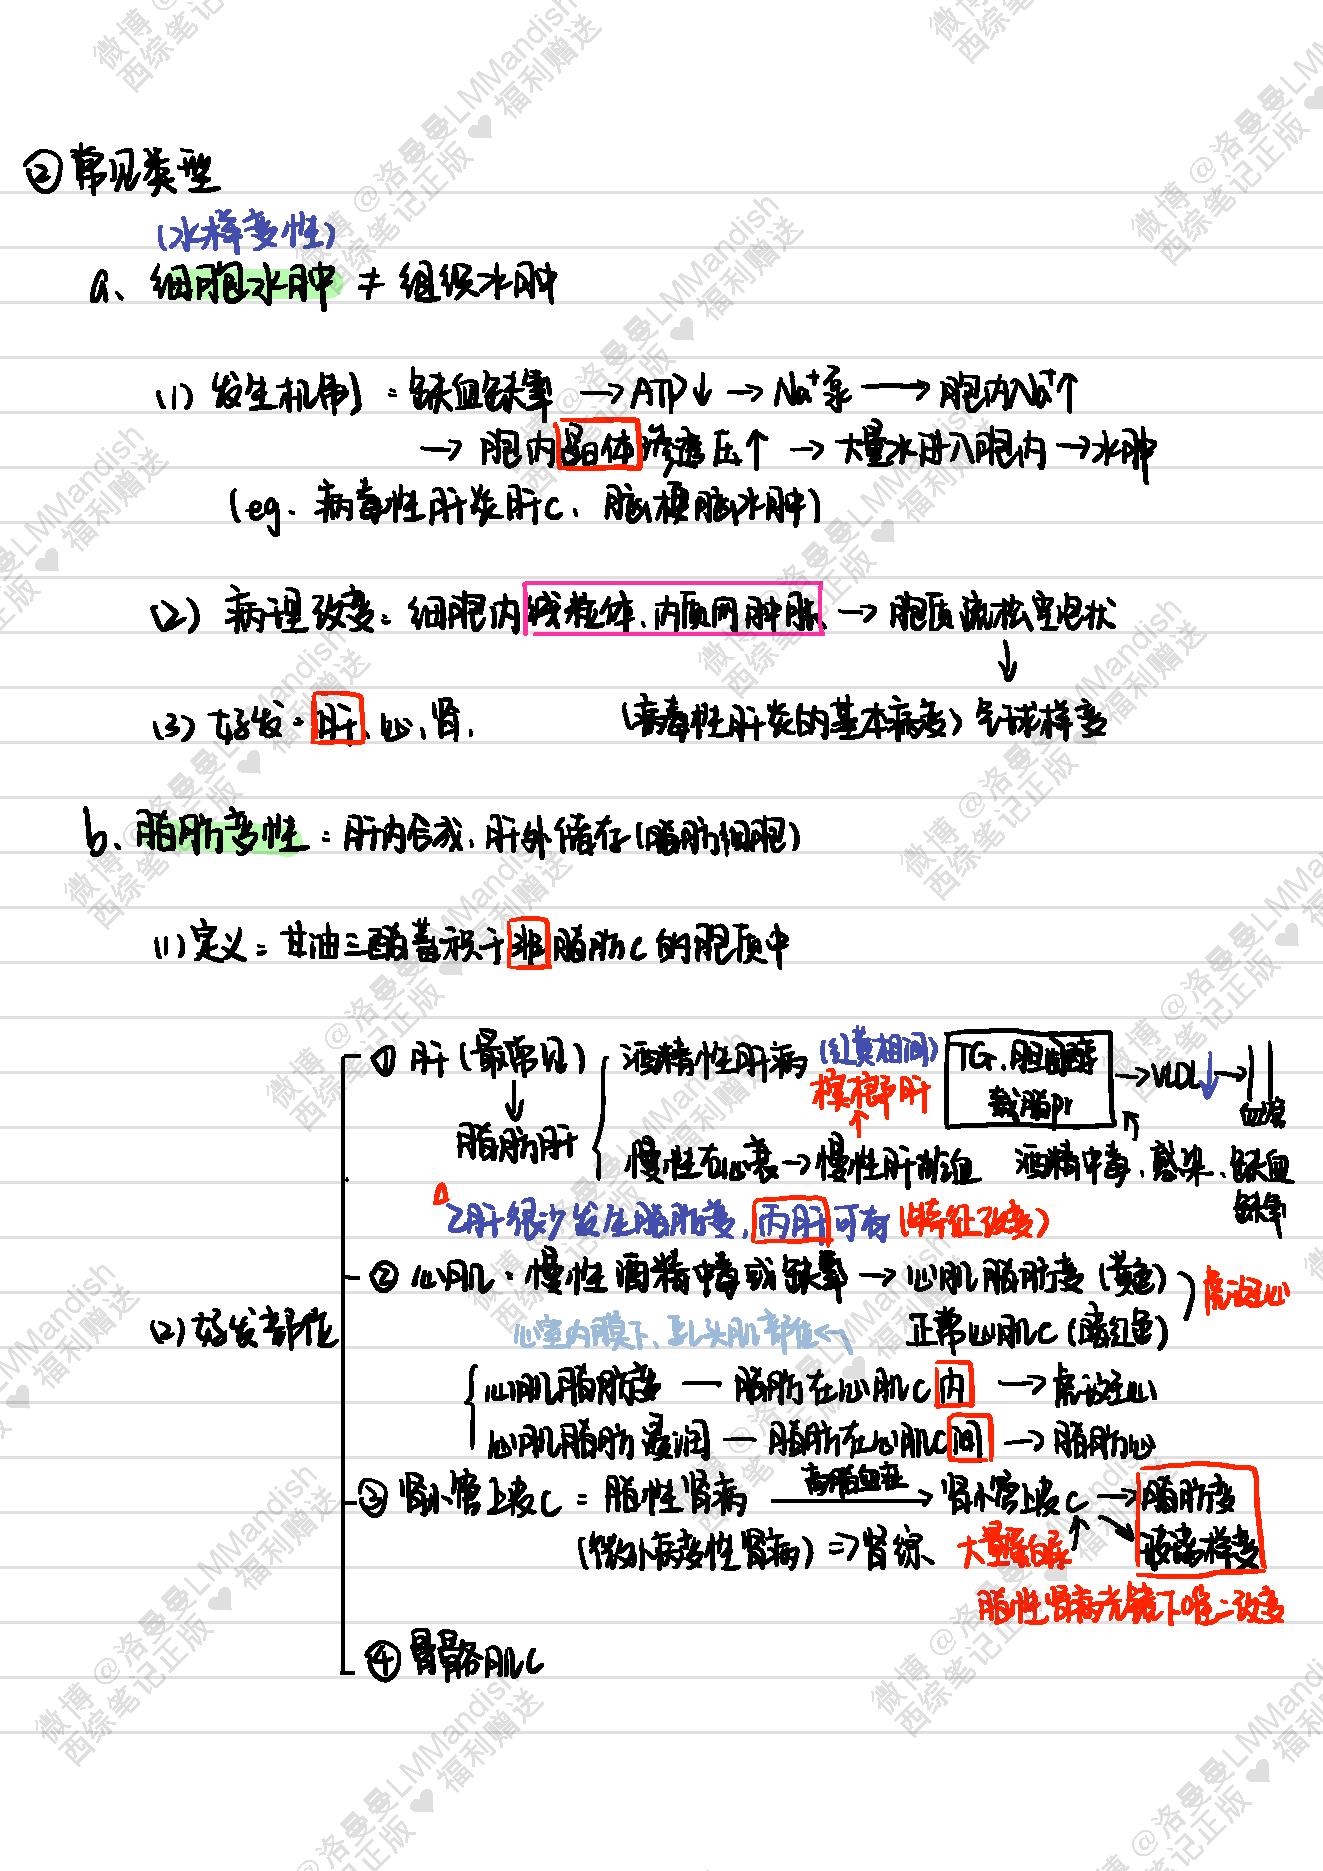 ②常见类型
(水样变性)
a、细胞水肿 ≠ 组织水肿
(1) 发生机制：缺血缺氧 → ATP↓ → Na⁺泵 → 胞内Na⁺↑
→ 胞内晶体渗透压↑ → 大量水进入胞内 → 水肿
(eg. 病毒性肝炎肝C、脑梗脑水肿)
(2) 病理改变：细胞内线粒体、内质网肿胀 → 胞质疏松空泡状
↓
(3) 好发：肝、心、肾, (病毒性肝炎的基本病变) 气球样变
b、脂肪变性：肝内合成，肝外储存(脂肪细胞)
(1) 定义：甘油三酯蓄积于非脂肪C的胞质中
①肝(最常见) 酒精性肝病 (红黄相间) TG、胆固醇 → VLDL↓ →
槟榔肝 载脂pr 血液
↓
脂肪肝 慢性右心衰 → 慢性肝淤血 酒精中毒、感染、缺血
缺氧
△ 乙肝很少发生脂肪变，丙肝可有 (特征改变)
②心肌：慢性酒精中毒或缺氧 → 心肌脂肪变 (黄色) 虎斑心
(2)好发部位 心室内膜下、乳头肌部位← 正常心肌C (暗红色)
心肌脂肪变 — 脂肪在心肌C内 → 虎斑心
心肌脂肪浸润 — 脂肪在心肌C间 → 脂肪心
③肾小管上皮C：脂性肾病 高脂血症→ 肾小管上皮C → 脂肪变
(微小病变性肾病) ⇒ 肾综、 大量蛋白尿 玻璃样变
脂性肾病光镜下唯二改变
④骨骼肌C
微博@洛曼曼LMMandish
西综笔记正版♥福利赠送